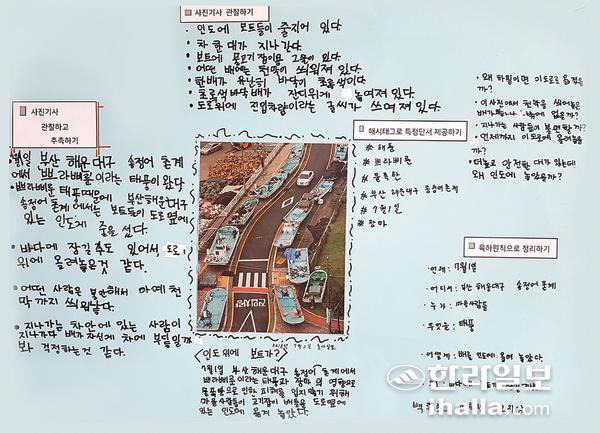 사진기사 관찰하기
· 인도에 보트들이 줄지어 있다
· 차 한대가 지나간다.
· 보트에 물고기잡이용 그물이 있다.
· 어떤 배에는 천막이 씌워져 있다.
· 한배가 유난히 바닥이 초록색이다
· 초록색 바닥 배가 잔디위에 놓여져 있다.
· 도로위에 진입차량이라는 글씨가 쓰여져 있다.
사진기사
관찰하고
추측하기
부산 해운대구 송정어 동계
에서 쁘라삐룬이라는 태풍이 왔다
· 쁘라삐룬 태풍때문에 부산해운대구
송정어 동계에서는 보트들이 도로옆에
있는 인도에 줄을 섰다.
· 바다에 장길 동도 있어서 도로
위에 올려놓은것 같다.
· 어떤 사람은 불안해서 아예 천
막까지 씌워놨다.
· 지나가는 차안에 있는 사람이
지나가다 배가 자신의 차에 부딪힐까
봐 걱정하는것 같다.
해시태그로 특정단서 제공하기
# 태풍
# 쁘라삐룬
# 물폭탄
# 부산 해운대구 송정어동계
# 7월1일
# 장마
· 왜 하필이면 인도로 옮겼을
까?
· 이 사진에서 천막을 씌어놓은
· 지나가는 사람들이 불편할까?
· 언제까지 인도로에 올려놓을
까?
· 더 넓고 안전한 대가 있는데
왜 인도에 놓았을까?
육하원칙으로 정리하기
언제 : 7월1일
어디서 : 부산 해운대구 송정어 동계
누가 : 마을사람들
무엇을 : 태풍
어떻게 : 배를 인도에 옮겨 놓았다.
진입차량
<인도 위에 보트가?>
7월1일 부산 해운대구 송정어 동계에서
쁘라삐룬이라는 태풍과 장마의 영향으로
물폭탄으로 인한 피해를 입지않기 위해
마을사람들이 고기잡이 배들을 도로옆에
있는 인도에 옮겨 놓았다.
한라일보
ihalla.com